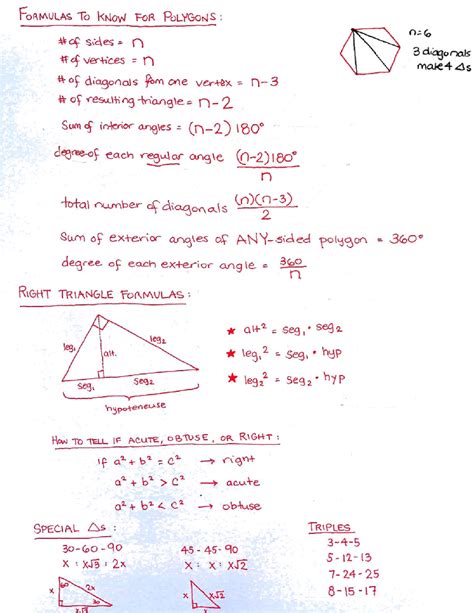 FORMULAS TO KNOW FOR POLYGONS:
n=6
3 diagonals
make 4 Δs
# of sides = n
# of vertices = n
# of diagonals from one vertex = n-3
# of resulting triangle = n-2
Sum of interior angles = (n-2)180°
degree of each regular angle (n-2)180°
n
total number of diagonals (n)(n-3)
2
Sum of exterior angles of ANY-sided polygon = 360°
degree of each exterior angle = 360
n
RIGHT TRIANGLE FORMULAS:
leg₁ alt. leg₂
seg₁ seg₂
hypoteneuse
★ alt² = seg₁ · seg₂
★ leg₁² = seg₁ · hyp
★ leg₂² = seg₂ · hyp
HOW TO TELL IF ACUTE, OBTUSE, OR RIGHT:
if a² + b² = c² → right
a² + b² > c² → acute
a² + b² < c² → obtuse
SPECIAL Δs:
30-60-90
x : x√3 : 2x
x 60 2x
30
x√3
45-45-90
x : x : x√2
x x√2
x
TRIPLES
3-4-5
5-12-13
7-24-25
8-15-17